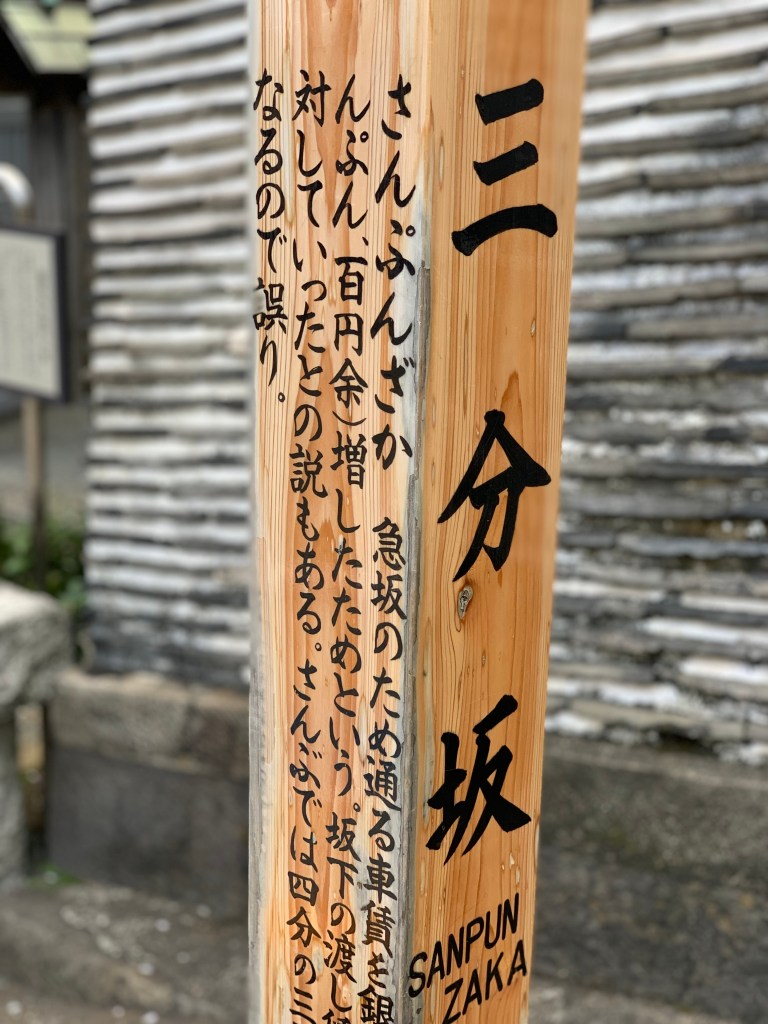 三分坂
SANPUN
ZAKA
さんぷんざか 急坂のため通る車賃を銀
んぷん、百円余）増したためという。坂下の渡し
対していったとの説もある。さんぶでは四分の三
なるので誤り。